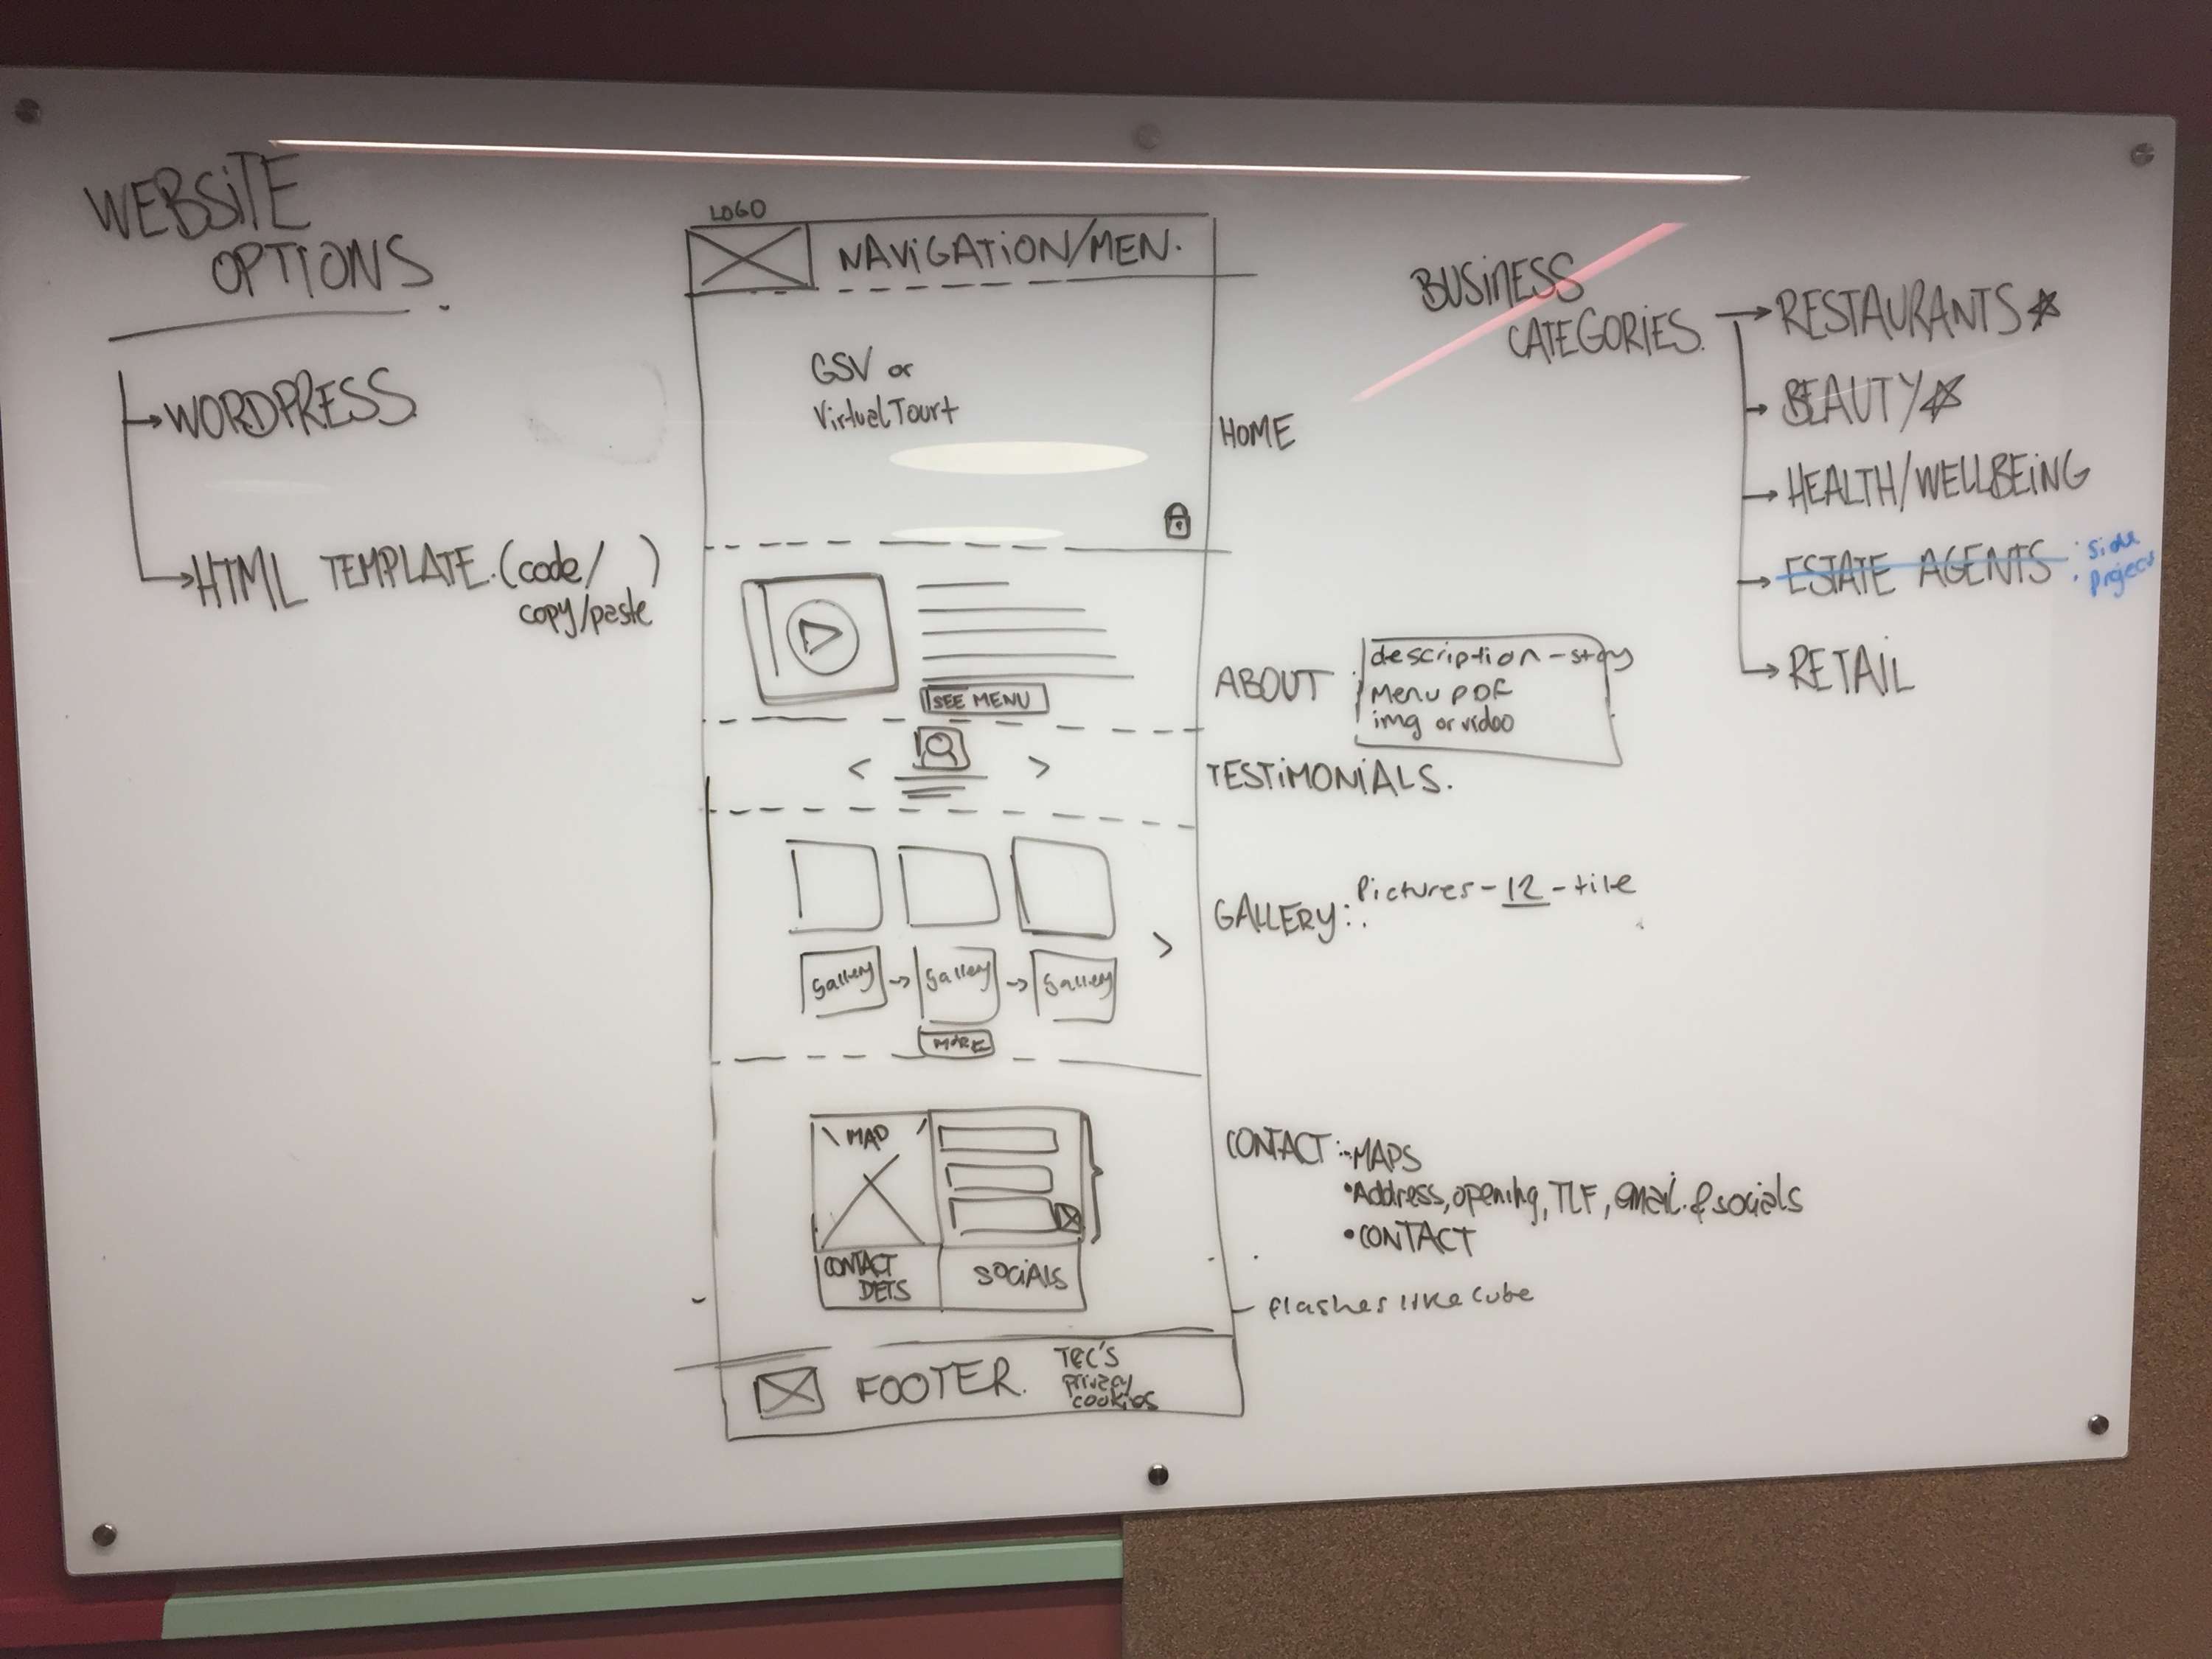 WEBSITE
OPTIONS
WORDPRESS
HTML TEMPLATE. (code/ )
copy/paste
LOGO
NAVIGATION/MEN.
GSV or
Virtual Tourt
HOME
SEE MENU
ABOUT
description - story
Menu PDF
img or video
< >
TESTIMONIALS.
GALLERY: Pictures - 12 - tile
>
gallery → gallery → gallery
MORE
MAP
CONTACT
DETS
SOCIALS
CONTACT: - MAPS
• Address, opening, TLF, email. & socials
• CONTACT
flashes like cube
FOOTER.
T&C'S
privacy
cookies
BUSINESS
CATEGORIES.
RESTAURANTS
BEAUTY
HEALTH/WELLBEING
ESTATE AGENTS
: side
project
RETAIL